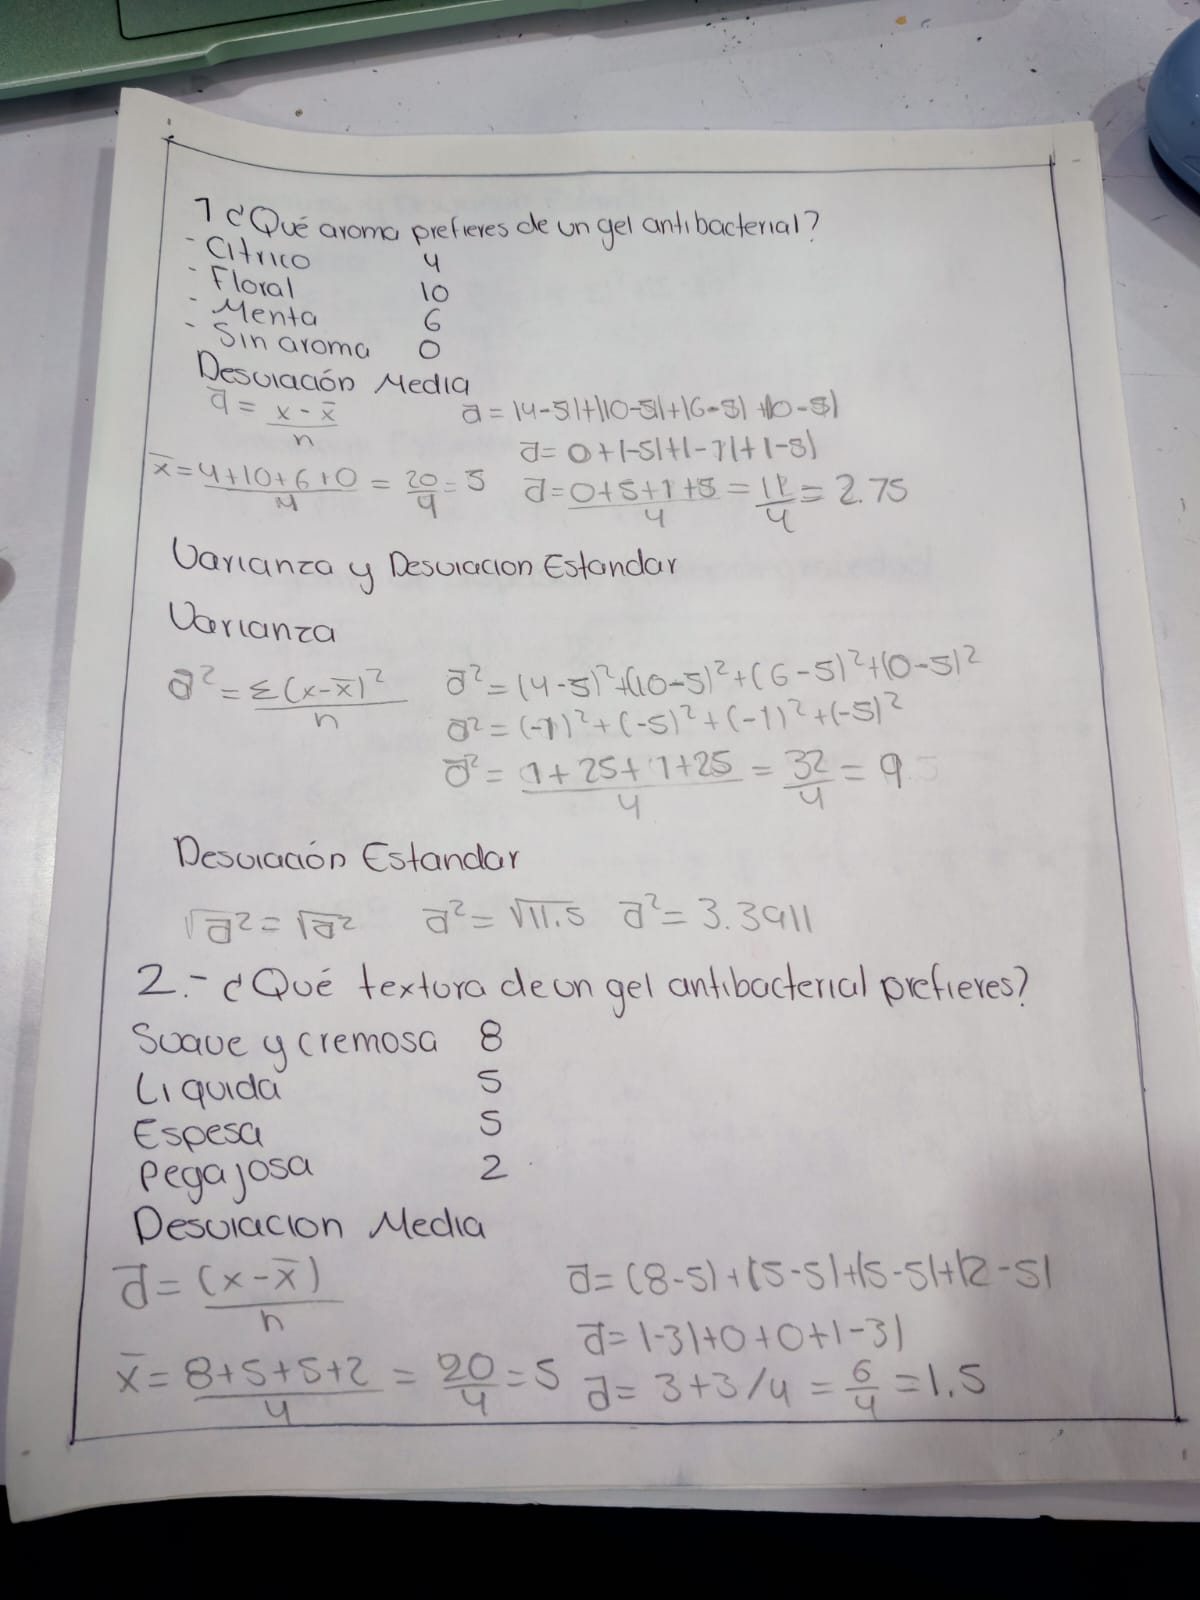 1 ¿Qué aroma prefieres de un gel antibacterial?
- Cítrico 4
- Floral 10
- Menta 6
- Sin aroma 0
Desviación Media
d̄ = x - x̄ / n d̄ = |4-5|+|10-5|+|6-5|+|0-5|
d̄ = 0+|-5|+|-1|+|-5|
x̄ = 4+10+6+0 / 4 = 20/4 = 5 d̄ = 0+5+1+5 / 4 = 11/4 = 2.75
Varianza y Desviacion Estandar
Varianza
σ² = Σ(x-x̄)² / n σ² = (4-5)²+(10-5)²+(6-5)²+(0-5)²
σ² = (-1)²+(-5)²+(-1)²+(-5)²
σ² = 1+25+1+25 / 4 = 32/4 = 9
Desviación Estandar
√σ² = √σ² σ² = √11.5 σ² = 3.3911
2.- ¿Qué textura de un gel antibacterial prefieres?
Suave y cremosa 8
Liquida 5
Espesa 5
Pegajosa 2
Desviacion Media
d̄ = (x-x̄) / n d̄ = (8-5)+|5-5|+|5-5|+|2-5|
d̄ = |-3|+0+0+|-3|
x̄ = 8+5+5+2 / 4 = 20/4 = 5 d̄ = 3+3/4 = 6/4 = 1.5